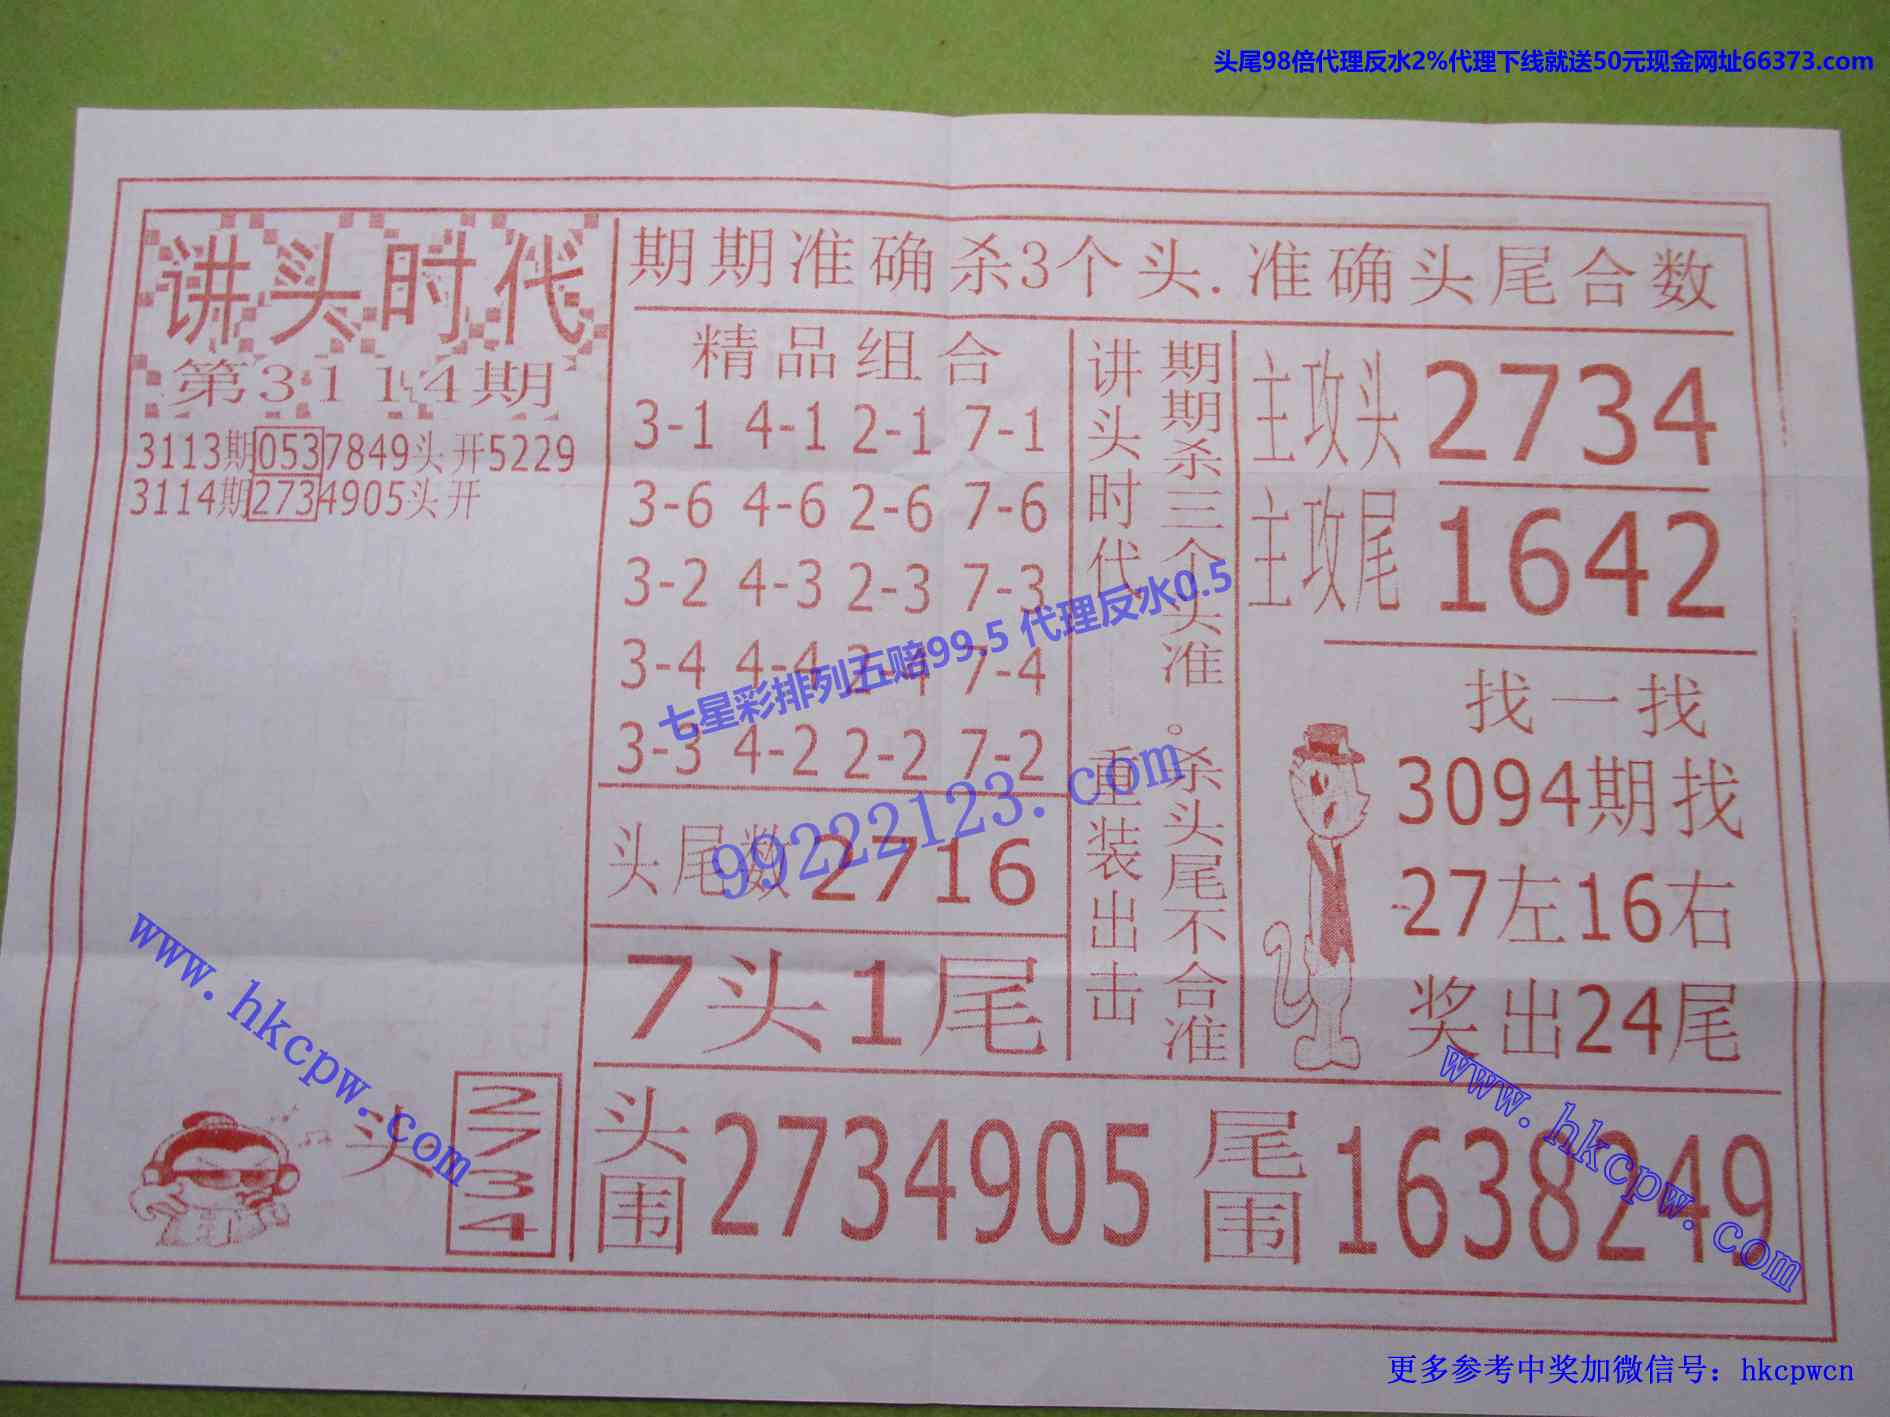 头尾98倍代理反水2%代理下线就送50元现金网址66373.com
讲头时代
第3114期
3113期0537849头开5229
3114期2734905头开
期期准确杀3个头.准确头尾合数
精品组合
3-1 4-1 2-1 7-1
3-6 4-6 2-6 7-6
3-2 4-3 2-3 7-3
3-4 4-4 2-4 7-4
3-3 4-2 2-2 7-2
头尾数2716
7头1尾
讲头时代 重装出击
期期杀三个头准。杀头尾不合准
主攻头 2734
主攻尾 1642
找一找
3094期找
27左16右
奖出24尾
头 2734
头围 2734905 尾围 1638249
七星彩排列五赔99.5 代理反水0.5
99222123.com
www.hkcpw.com
www.hkcpw.com
更多参考中奖加微信号：hkcpwcn